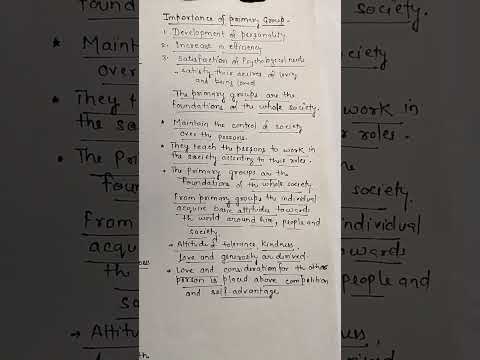 Importance of primary Group -
1. Development of personality
2. Increase in efficiency
3. Satisfaction of Psychological needs
- satisfy their desires of loving
and being loved
The primary groups are the
foundations of the whole society.
* Maintain the control of society
over the persons.
* They teach the persons to work in
the society according to their roles.
* The primary groups are the
foundations of the whole society
From primary groups the individual
acquire basic attitudes towards
the world around him, people and
society.
→ Attitude of tolerance, kindness,
love and generosity are derived
→ Love and consideration for the other
person is placed above competition
and self-advantage